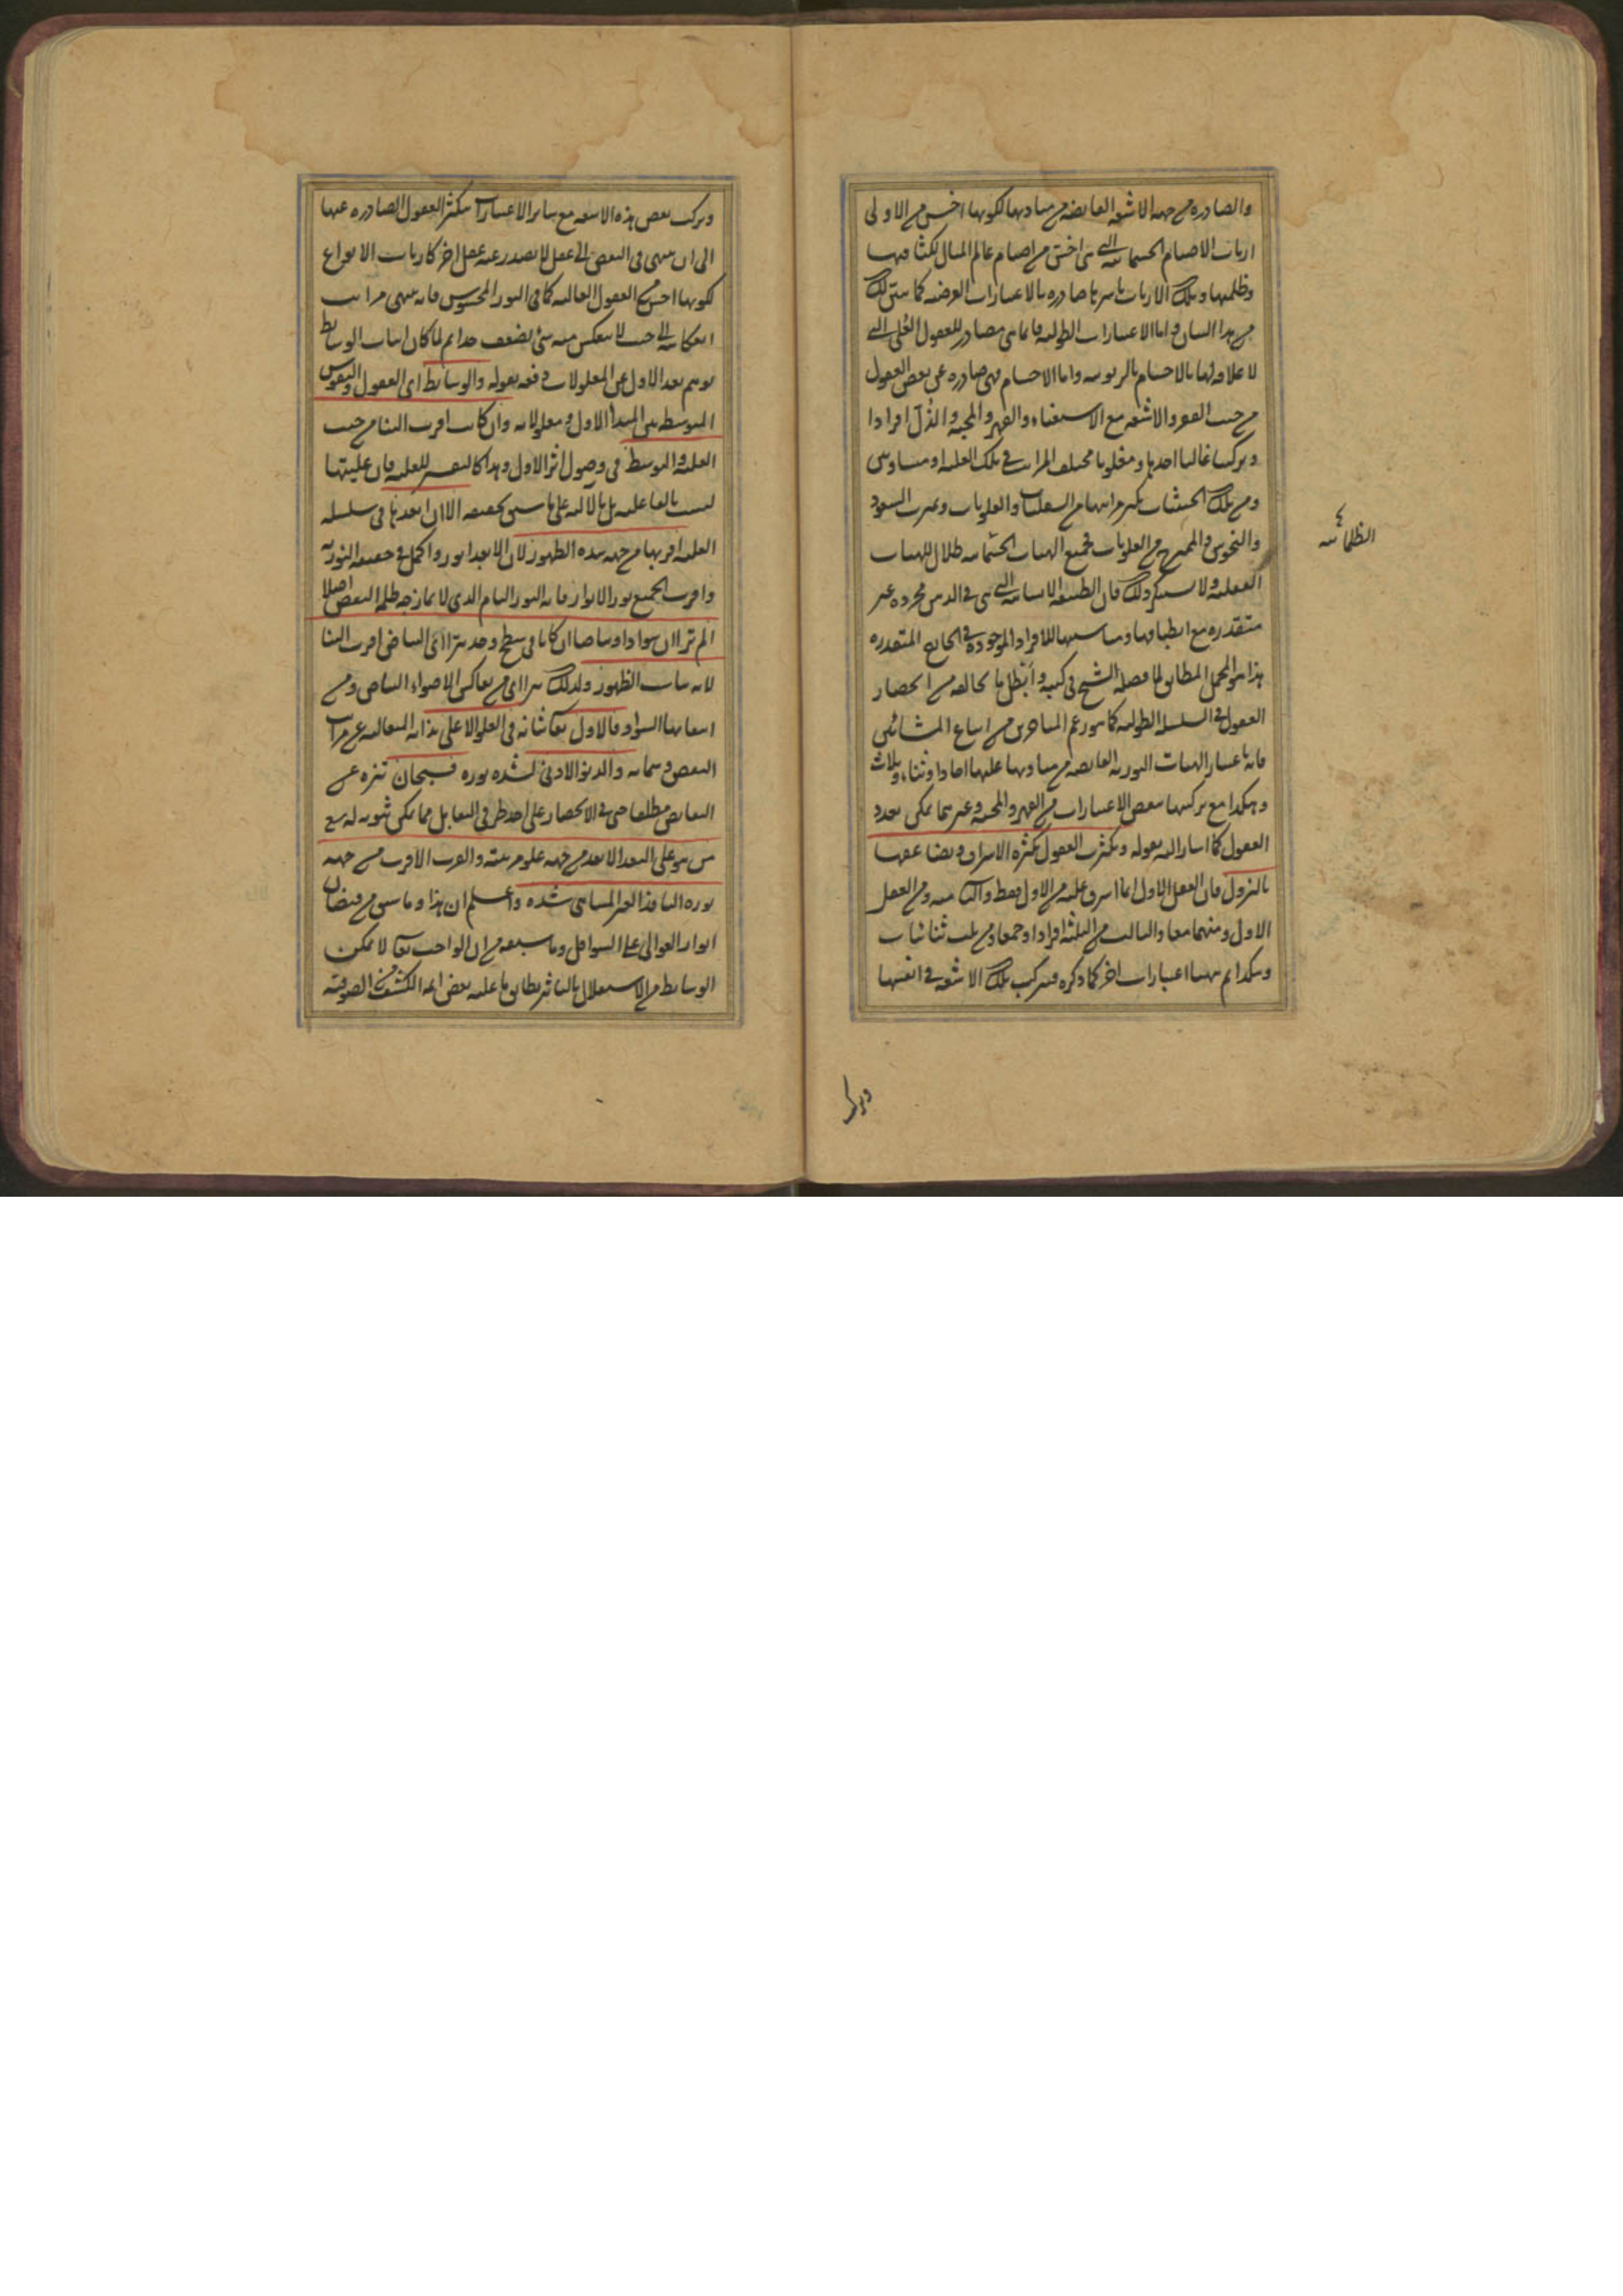 والصادرة من جهة الاشعة الفايضة من مباديها لكونها اخس من الاولى
ارباب الاصنام الجسمانية التى هى اخس من اصنام عالم المثال لكثافتها
وظلمتها وتلك الارباب باسرها صادرة بالاعتبارات العرضية كما سبق لك
من هذا البيان واما الاعتبارات الطولية فانما هى مصادر للعقول العُلى التى
لا علاقة لها بالاجسام بالربوبية واما الاجسام فهى صادرة عن بعض العقول
من حيث الفقر والاشعة مع الاستغناء والقهر والمحبة والذل افرادا
وتركيبا غالبا احدها ومغلوبا مختلف المراتب فى تلك الغلبة او متساويين
ومن تلك الحيثيات يكثر مراتبها من السفليات والعلويات وغيرت السعود
والنحوس والممتزج من العلويات فجميع الهيئات الجسمانية ظلال للهيئات
الظلمانية
العقلية ولا يستنكر ذلك فان الطبيعة الانسانية التى هى فى الذهن مجردة غير
متقدرة مع انطباقها ومناسبتها للافراد الموجودة فى الخارج المتقدرة
هذا هو المجمل المطابق لما فصله الشيخ فى كتبه وابطل ما يخالفه من انحصار
العقول فى السلسلة الطولية كما هو زعم المتاخرين من اتباع المشائين
فانه باعتبار الهيئات النورية الفايضة من مباديها عليها احادا وثناء وثلاث
وهكذا مع تركبها ببعض الاعتبارات من القهر والمحبة وغيرهما يمكن تعدد
العقول كما اشار اليه بقوله وتكثرت العقول بكثرة الاشراق وتضاعفها
بالنزول فان العقل الاول انما اشرق عليه من الاول فقط والثانى منه ومن العقل
الاول ومنهما معا والثالث من الثلثة افرادا وجمعا ومن ثلث ثنائيات
وهكذا ثم ههنا اعتبارات اخر كما ذكره فتركب تلك الاشعة فى انفسها
وتركب
وتركب بعض هذه الاشعة مع ساير الاعتبارات تتكثر العقول الصادرة عنها
الى ان ينتهى فى النقص الى عقل لا يصدر عنه عقل اخر كارباب الانواع
لكونها اخس من العقول العالية كما فى النور المحسوس فانه ينتهى مراتب
انعكاسه الى حيث لا ينعكس منه شئ لضعف حدا ثم لما كان اثبات الوسايط
يوهم بعد الاول عن المعلولات دفعه بقوله والوسايط اى العقول والنفوس
المتوسطة بين المبدأ الاول ومعلولاته وان كانت اقرب الينا من حيث
العلية والتوسط فى وصول اثر الاول وهذا كالتفسير للعلية فان عليتها
ليست بالفاعلية بل بالآلية على ما سبق تحقيقه الا ان ابعدها فى سلسلة
العلية اقربها من جهة شدة الظهور لان الابعد انور واكمل فى حقيقة النورية
واقرب الجميع نور الانوار فانه النور التام الذى لا يمازجه ظلمة النقص اصلا
الم تر ان سوادا وبياضا ان كانا فى سطح واحد يتراءى البياض اقرب الينا
لانه يناسب الظهور ولذلك يتراءى من تعاكس الاضواء البياض ومن
انتفائها السواد فالاول تعالى شانه فى العلو الاعلى بذاته المتعالية عن مراتب
النقص وسماته والدنو الادنى لشدة نوره فسبحان تنزه عن
النقايص مطلقا حتى فى الانحصار على احد طرفى التقابل مما يمكن ثبوته له مع
من هو على البعد الابعد من جهة علو مرتبته والقرب الاقرب من جهة
نوره النافذ الغير المتناهى شدة واعلم ان هذا وما سبق من فيضان
انوار العوالى على السوافل وما سيتبعه من ان الواجب تعالى لا يمكن
الوسايط من الاستقلال بالتاثير يطابق ما عليه بعض ائمة الكشف من الصوفية